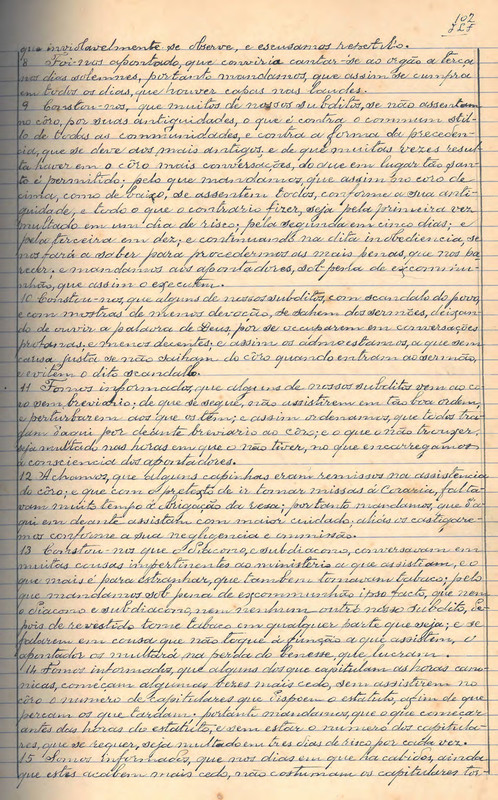 107
que inviolavelmente se observe, e escusamos repetil-o.
8 Foi-nos apontado, que conviria cantar-se ao orgão a terça
nos dias solemnes, portanto mandamos, que assim se cumpra
em todos os dias, que houver capas nas laudes.
9 Constou-nos, que muitos de nossos subditos, se não assentam
no côro, por suas antiguidades, o que é contra o commum estil-
lo de todas as communidades, e contra a forma da preceden-
cia, que se deve aos mais antigos, e de que muitas vezes resul-
ta haver em o côro mais conversações, do que em lugar tão san-
to é permittido; pelo que mandamos, que assim no coro de
cima, como de baixo, se assentem todos, conforme a sua anti-
guidade, e todo o que o contrario fizer, seja pela primeira vez
multado em um dia de risco; pela segunda em cinco dias; e
pela terceira em dez; e continuando na dita inobediencia, se
nos fará a saber para procedermos ás mais penas, que nos pa-
recer; e mandamos aos apontadores, sob penna de excommu-
nhão, que assim o executem.
10 Constou-nos, que alguns de nossos subditos, com scandalo do povo,
e com mostras de menos devoção, se sahem dos sermões, deixan-
do de ouvir a palavra de Deus, por se occuparem em conversações
profanas, e menos decentes; e assim os admoestamos, a que sem
causa justa se não saiham do côro quando entram ao sermão,
e evitem o dito scandalo.
11 Fomos informados, que alguns de nossos subditos vem ao co-
ro sem breviario; de que se segue, não assistirem em tão boa ordem,
e perturbarem aos que os têm; e assim ordenamos, que todos tra-
gam d'aqui por deante breviario ao côro; e o que o não trouxer,
seja multado nas horas em que o não tiver, no que encarregamos
a consciencia dos apontadores.
12 Achamos, que alguns capinhas eram remissos na assistencia
do côro; e que com o pretexto de ir tomar missas á Coraria, falta-
vam muito tempo á obrigação da resa; portanto mandamos, que d'a-
qui em deante assistam com maior cuidado, aliás os castigare-
mos conforme a sua negligencia e ommissão.
13 Constou-nos que o Diacono, e subdiacono, conversavam em
muitas cousas impertinentes ao ministerio a que assistiam, e o
que mais é para estranhar, que tambem tomavam tabaco; pelo
que mandamos sob pena de excommunhão ipso facto, que nem
o diacono e subdiacono, nem nenhum outro nosso subdito, de-
pois de revestido tome tabaco em qualquer parte que seja; e se
fallarem em cousa que não toque á funcção a que assistem, o
apontador os multará na perda do benesse, que lucram.
14 Fomos informados, que alguns dos que capitulam as horas cano-
nicas, começam algumas vezes mais cedo, sem assistirem no
côro o numero de Capitulares que dispoem o estatuto, afim de que
percam os que tardam. portanto mandamos, que o que começar
antes das horas do estatuto, e sem estar o numero dos capitula-
res, que se requer, seja multado em tres dias de risco por cada vez.
15 Somos informados, que nos dias em que ha cabidos, ainda
que estes acabem mais cedo, não costumam os capitulares tor-